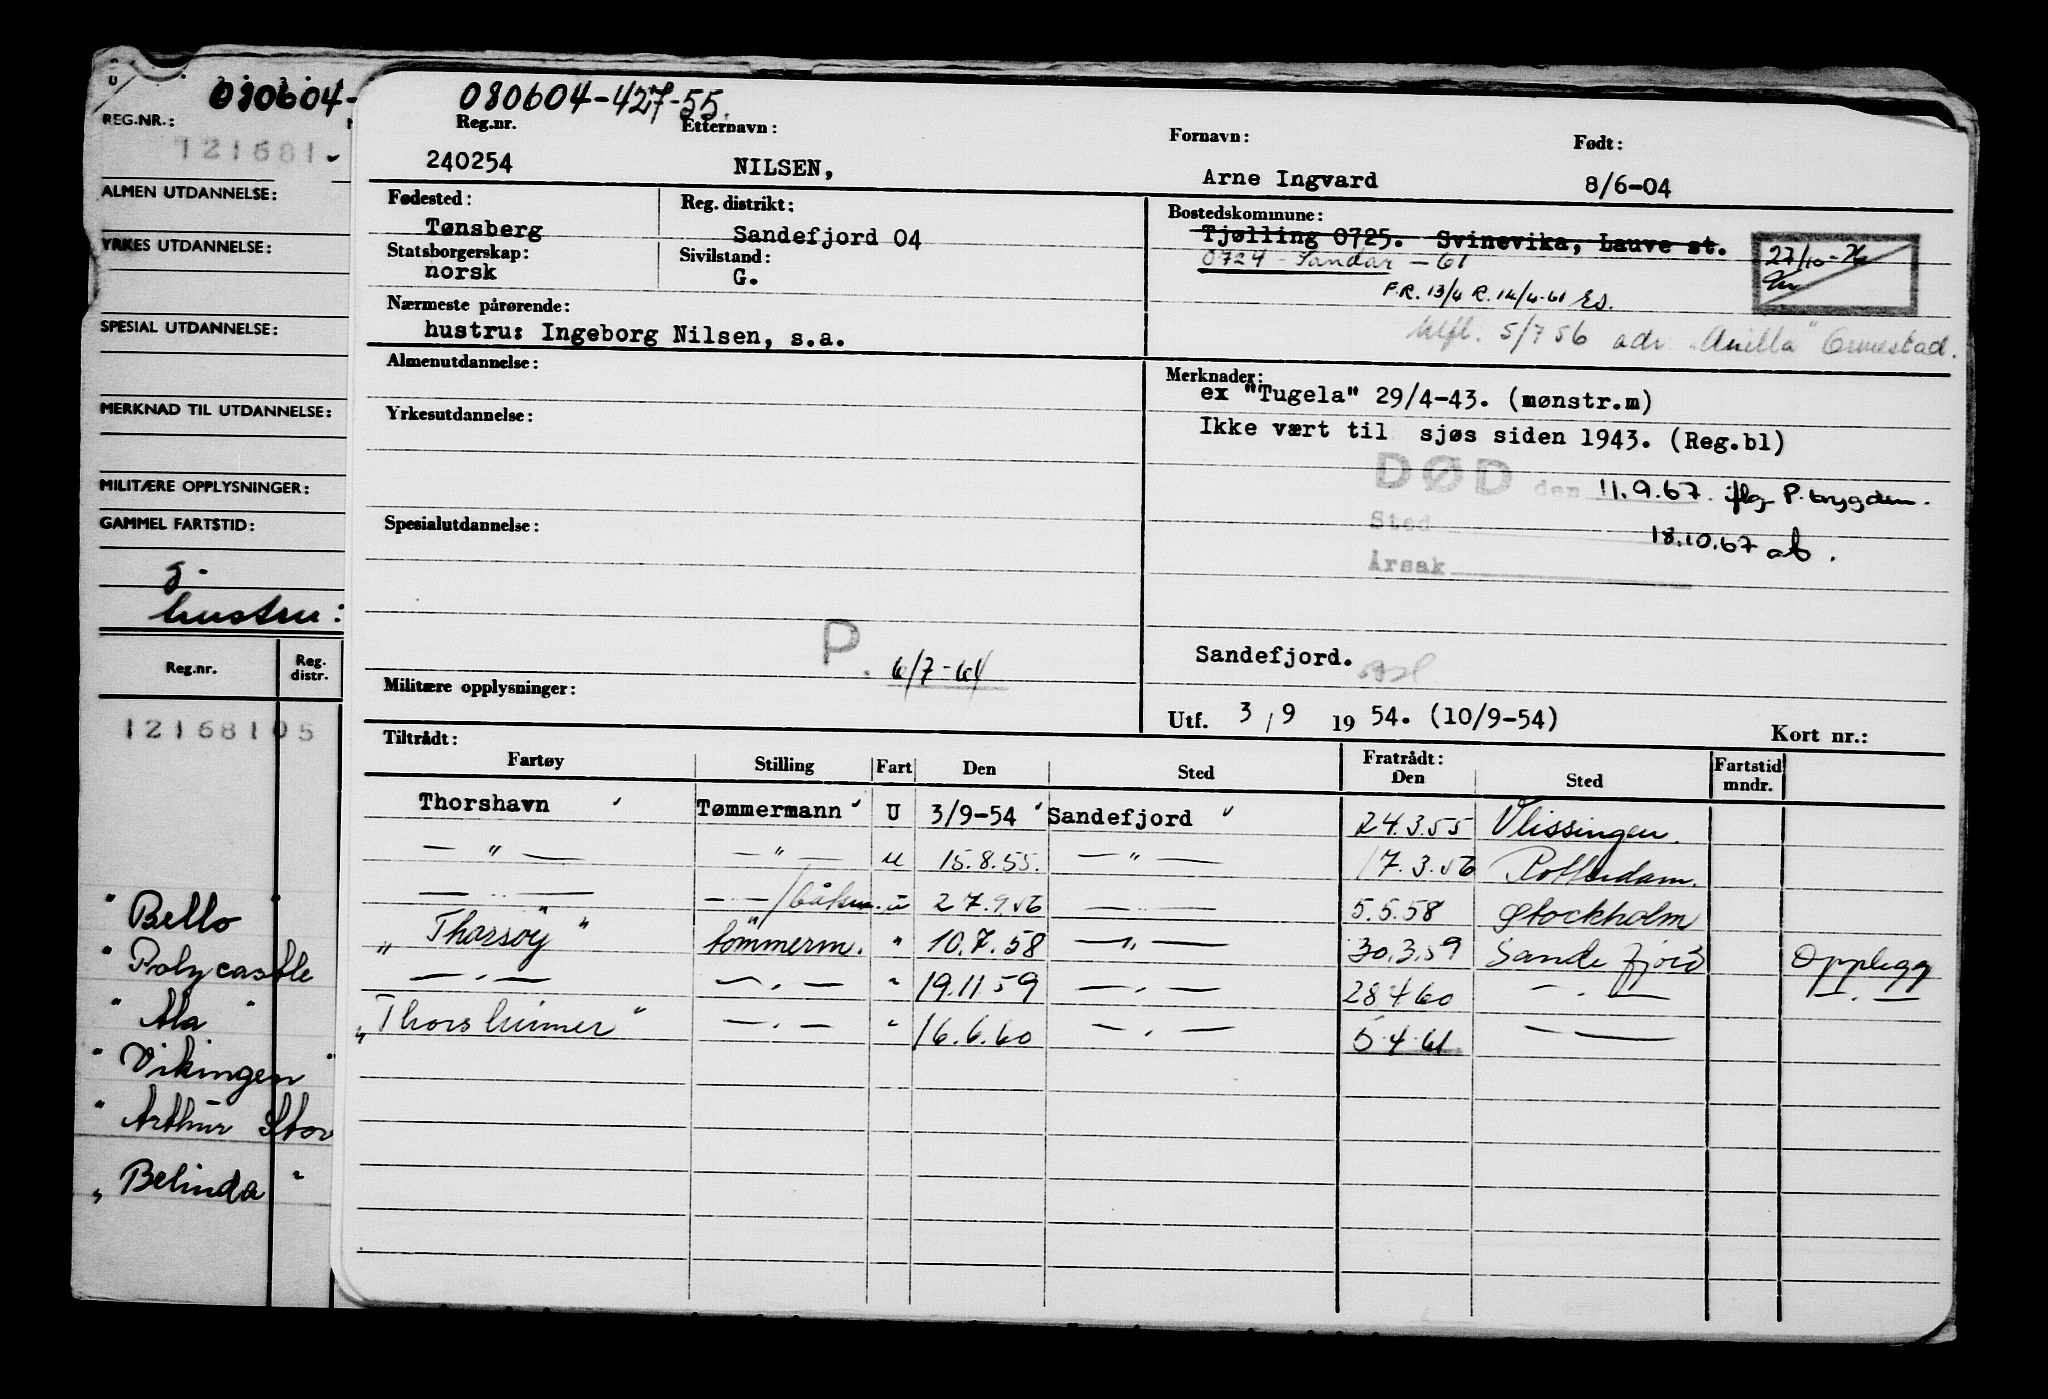 080604-
REG.NR.:
121681
ALMEN UTDANNELSE:
YRKES UTDANNELSE:
SPESIAL UTDANNELSE:
MERKNAD TIL UTDANNELSE:
MILITÆRE OPPLYSNINGER:
GAMMEL FARTSTID:
g.
hustru:
Reg.nr. Reg. distr.
12168105
" Bello "
" Polycastle
" Ala "
" Vikingen "
" Arthur Stor
" Belinda "
080604-427-55.
Reg.nr. Etternavn: Fornavn: Født:
240254 NILSEN, Arne Ingvard 8/6-04
Fødested: Reg. distrikt: Bostedskommune:
Tønsberg Sandefjord 04 Tjølling 0725. Svinevika, Lauve st.
Statsborgerskap: Sivilstand: 0724 - Sandar - 61
norsk G. 27/10-
F.R. 13/4 R. 14/4-61 Es.
Nærmeste pårørende:
hustru: Ingeborg Nilsen, s.a. 5/7 56 adr.
Almenutdannelse: Merknader:
ex "Tugela" 29/4-43. (mønstr.m)
Yrkesutdannelse: Ikke vært til sjøs siden 1943. (Reg.bl)
DØD den 11.9.67 iflg P. trygden.
Spesialutdannelse: Sted 18.10.67 ab.
Årsak
P. 6/7-64 Sandefjord.
Militære opplysninger:
Utf. 3/9 1954. (10/9-54) Kort nr.:
Tiltrådt: Fratrådt: Fartstid
Fartøy Stilling Fart Den Sted Den Sted mndr.
Thorshavn Tømmermann U 3/9-54 Sandefjord 24.3.55 Vlissingen.
— " — — " — u 15.8.55. — " — 17.3.56 Rotterdam.
— " — — " —/båtsm. u 27.9.56 — " — 5.5.58 Stockholm
" Thorsøy " tömmerm. " 10.7.58 — " — 30.3.59 Sandefjord Opplegg
— " — — " — " 19.11.59 — " — 28.4.60 — " — — " —
" Thorshimer " — " — " 16.6.60 — " — 5.4.61 — " —